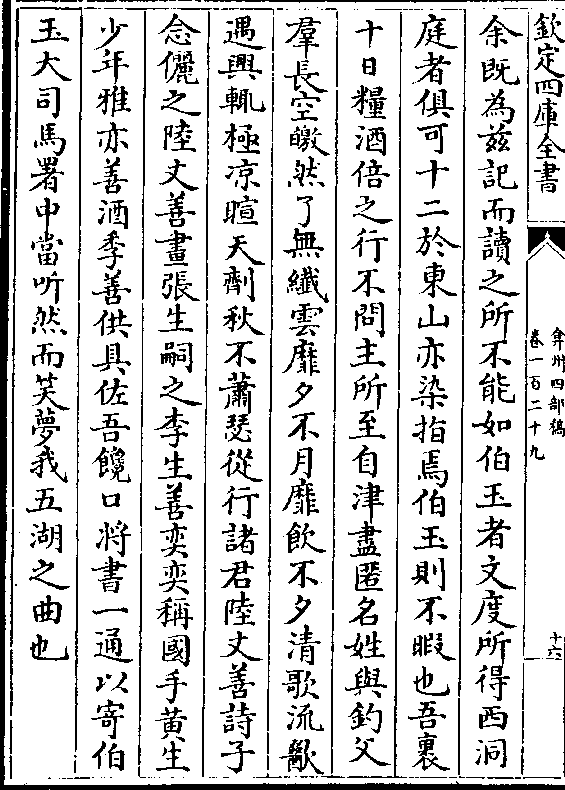 欽定四庫全書
弇州四部稿
卷一百二十九
十六
余既為茲記而讀之所不能如伯玉者文度所得西洞
庭者俱可十二於東山亦染指焉伯玉則不暇也吾裹
十日糧酒倍之行不問主所至自津盡匿名姓與釣父
羣長空皦然了無纖雲靡夕不月靡飲不夕清歌流歠
遇興輒極凉暄天劑秋不蕭瑟從行諸君陸丈善詩子
念儷之陸丈善畫張生嗣之李生善奕奕稱國手黃生
少年雅亦善酒季善供具佐吾饞口將書一通以寄伯
玉大司馬署中當听然而笑夢我五湖之曲也